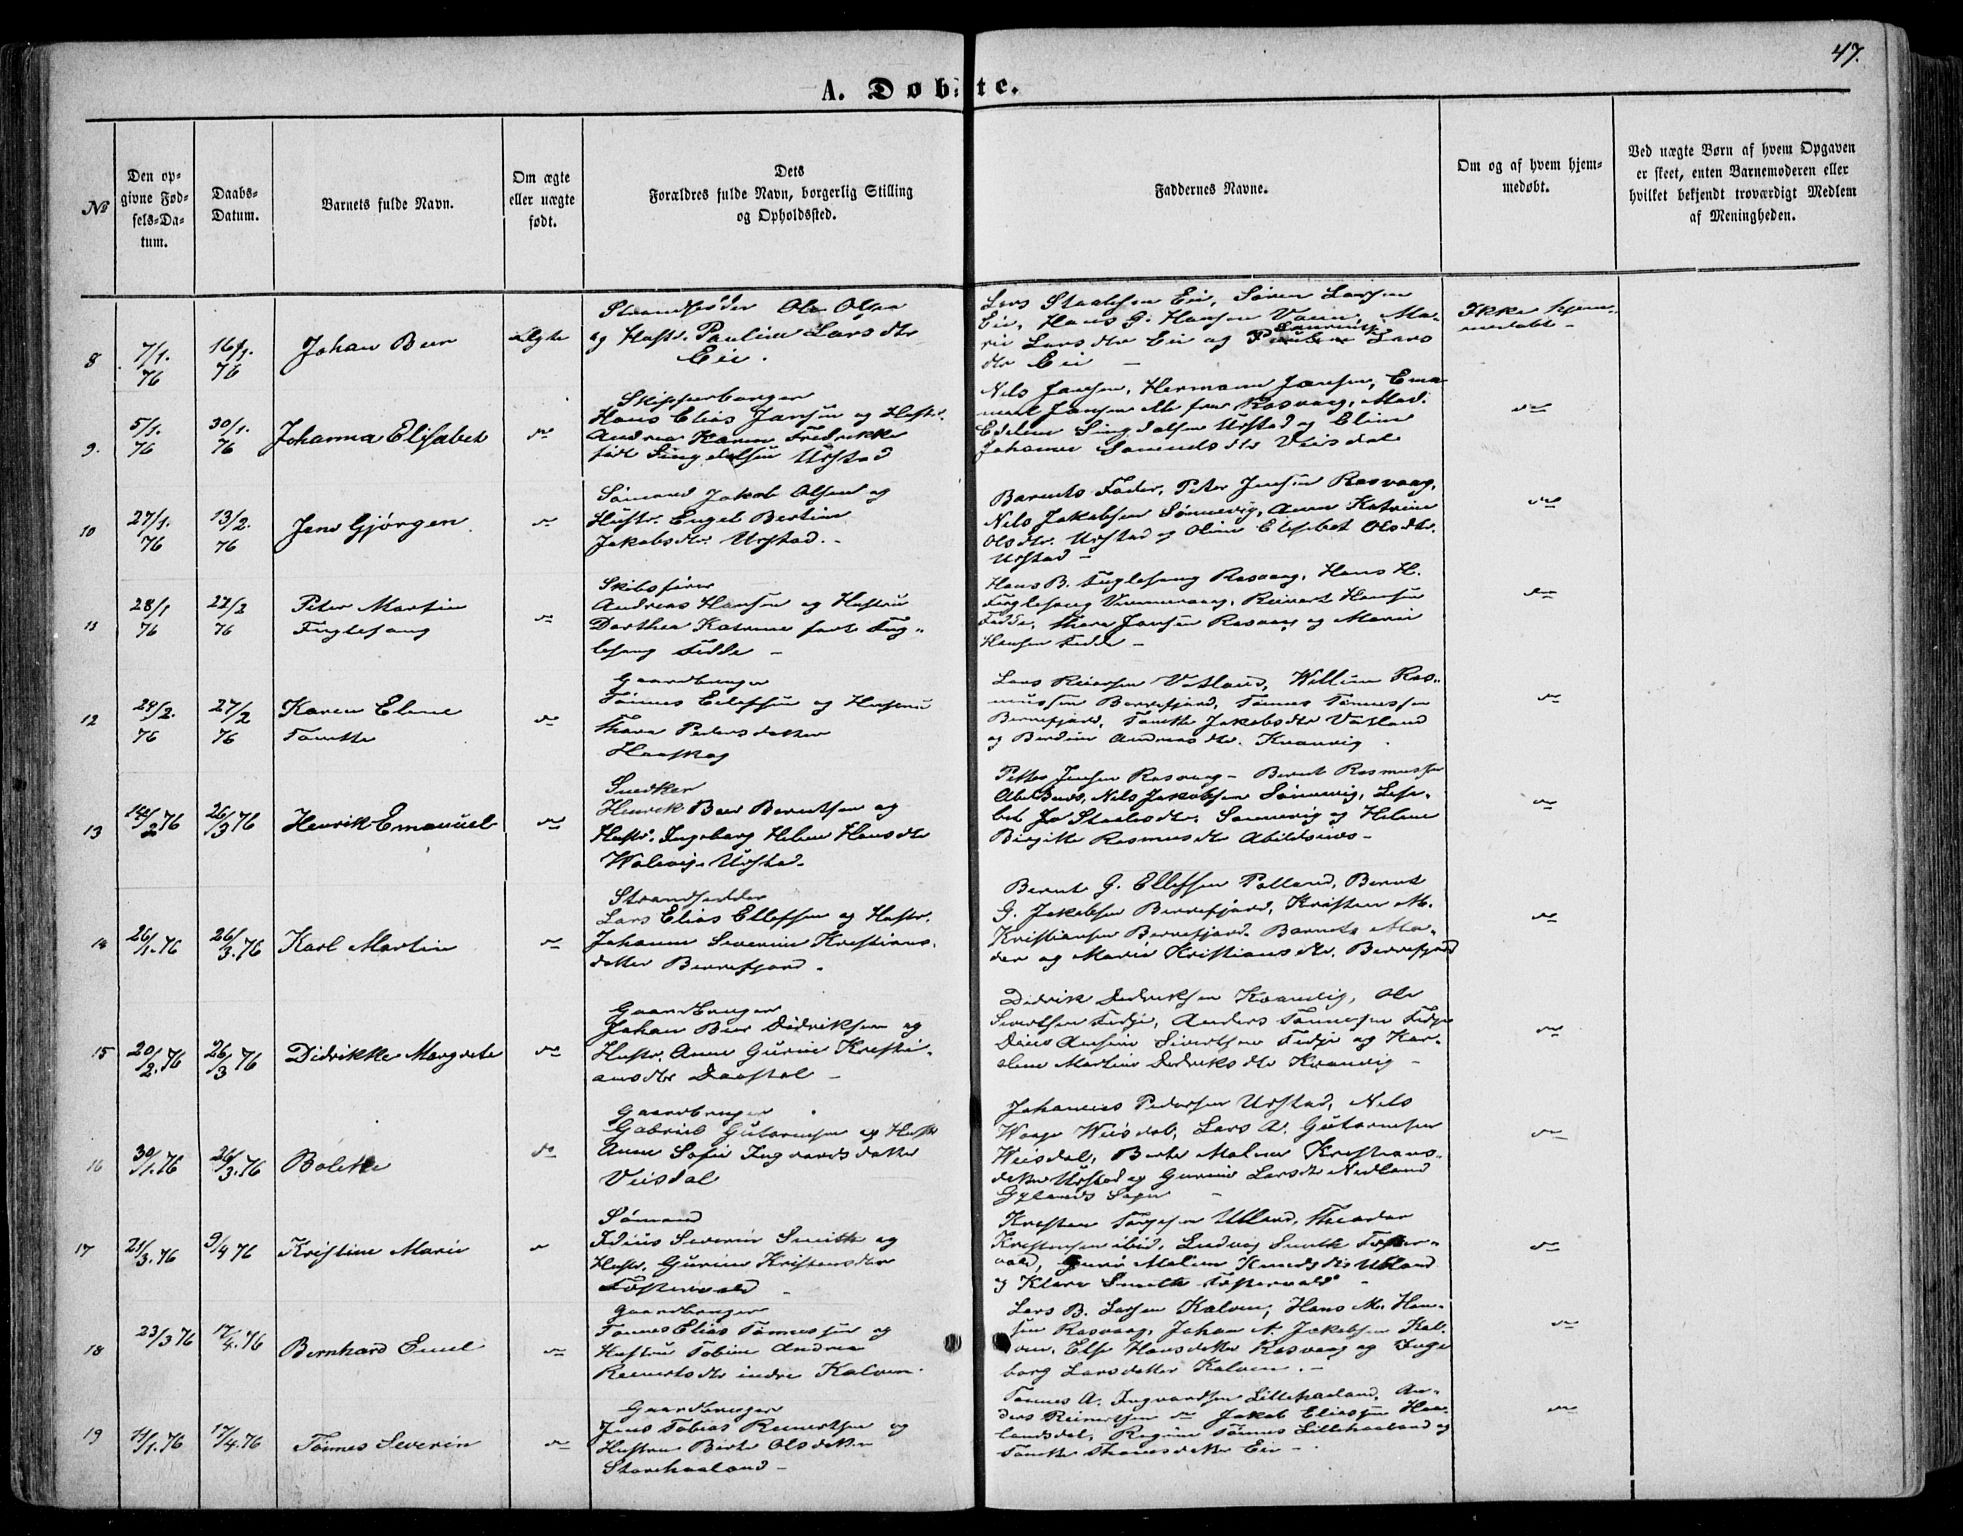 47.
A. Døbte.
№
Den opgivne Fødsels-Datum.
Daabs-Datum.
Barnets fulde Navn.
Om ægte eller uægte født.
Dets Forældres fulde Navn, borgerlig Stilling og Opholdssted.
Faddernes Navne.
Om og af hvem hjemmedøbt.
Ved uægte Børn af hvem Opgaven er skeet, enten Barnemoderen eller hvilket bekjendt troværdigt Medlem af Meningheden.
8
7/1. 76
16/1. 76
Johan Beer
Ægte
Strandsidder Ole Olsen
og Hustr. Pauline Larsdtr
Eie.
Lars Staalesen Eie, Sören Larsen
Eie, Hans G. Hansen Ma-
rie Larsdtr Eie og Lars
dtr Eie —
Ikke hjem-
medøbt —
9.
5/1. 76
30/1. 76
Johanna Elisabet
do
Skipperborger
Hans Elias Jansen og Hustr.
Andrea Karen Fredrikke
født Singdalsen Urstad
Nils Jansen, Hermann Jansen, Ema-
nuel Jansen Alle fra Rasvaag, Mad.
Edeline Singdalsen Urstad og Eline
Johanne Samuelsdtr Veisdal
do
10
27/1. 76
13/2. 76
Jens Gjörgen
do
Sömand Jakob Olsen og
Hustr. Engel Bertine
Jakobsdtr. Urstad. —
Barnets Fader, Peter Jensen Rasvaag,
Nils Jakobsen Sönnevig, Anne Katrine
Olsdtr. Urstad og Oline Elisebet Olsdtr.
Urstad —
do
11
28/1 76
27/2 76
Peter Martin
Fuglesang
do
Skibsförer
Andreas Hansen og Hustru
Dorthea Katrine født Fug-
lesang Fedde —
Hans B. Fuglesang Rasvaag, Hans H.
Fuglesang Reinert Hansen
Fedde, Thora Jansen Rasvaag og Marie
Hansen Fedde —
do
12
24/2. 76
27/2 76
Karen Elene
Tonette
do
Gaardbruger
Tönnes Eilefsen og Hustru
Thora Pedersdatter
Haaskog
Lars Vatland, Willum Ras-
mussen Berrefjord, Tönnes Tönnessen
Berrefjord, Tonette Jakobsdtr Vatland
og Berdine Andreasdtr. Kvanvig.
do
13
14/2 76
26/3 76
Henrik Emanuel
do
Snedker
Henrik Beer Berntsen og
Hustr. Ingeborg Helene Hansdtr
Wolevig, Urstad.
Petter Jensen Rasvaag — Bernt Rasmussen
Nils Jakobsen Sönnevig, Lise-
bet Jo Staalesdtr. Sönnevig og Helene
Birgitte Rasmusdtr Abildsnes —
do
14
26/1. 76
26/3. 76
Karl Martin
do
Strandsidder
Lars Elias Ellefsen og Hustr.
Johanne Severine Kristians-
datter Berrefjord.
Bernt G. Ellefsen Bernt
G. Jakobsen Berrefjord, Kristen M.
Kristiansen Berrefjord. Barnets Mo-
der og Marie Kristiansdtr. Berrefjord
do
15
20/2. 76
26/3 76
Didrikke Margrete
do
Gaardbruger
Johan Beer Didriksen og
Hustr. Anne Gurine Kristi-
ansdtr Daastøl —
Didrik Didriksen Kvanvig, Ole
Sivertsen Fidje, Anders Tönnesen Fidje
Sivertsen Fidje og Kar-
oline Martine Didriksdtr Kvanvig —
do
16
30/1. 76
26/3. 76
Bolette
do
Gaardbruger
Gabriel Gutormsen og Hustr
Anne Sofie Ingvardsdatter
Veisdal
Johannes Pedersen Urstad, Nils
Waage Weisdal, Lars A. Gutormsen
Weisdal, Berte Maline Kristians-
datter Urstad og Gurine Larsdtr Nedland
Gylands Sogn —
17
21/3. 76
9/4 76
Kristine Marie
do
Sömand
Severin Smith og
Hustr. Gurine Kristensdtr
—
Kristen Ulland, Theodor
Kristensen ibid, Ludvig Smith
Guro Maline Ulland
og Klara Smith
do
18
23/3 76
17/4. 76
Bernhard Emil
do
Gaardbruger
Tönnes Elias Tönnessen og
Hustru Tobine Andrea
Reinertsdtr indre Kalven.
Lars B. Larsen Kalven, Hans M. Han-
sen Rasvaag, Johan A. Jakobsen Kal-
ven, Else Hansdatter Rasvaag og Inge-
borg Larsdatter Kalven. —
do
19
11/1. 76
17/4. 76
Tönnes Severin
do
Gaardbruger
Jens Tobias Reinertsen og
Hustru Berte Olsdatter
Storehaaland —
Tönnes A. Ingvardsen Lillehaaland, An-
ders Reinertsen do Jakob Eliasen Haa-
landsdal, Regine Tönnes Lillehaaland og
Tonette Thomesdatter Eie —
do